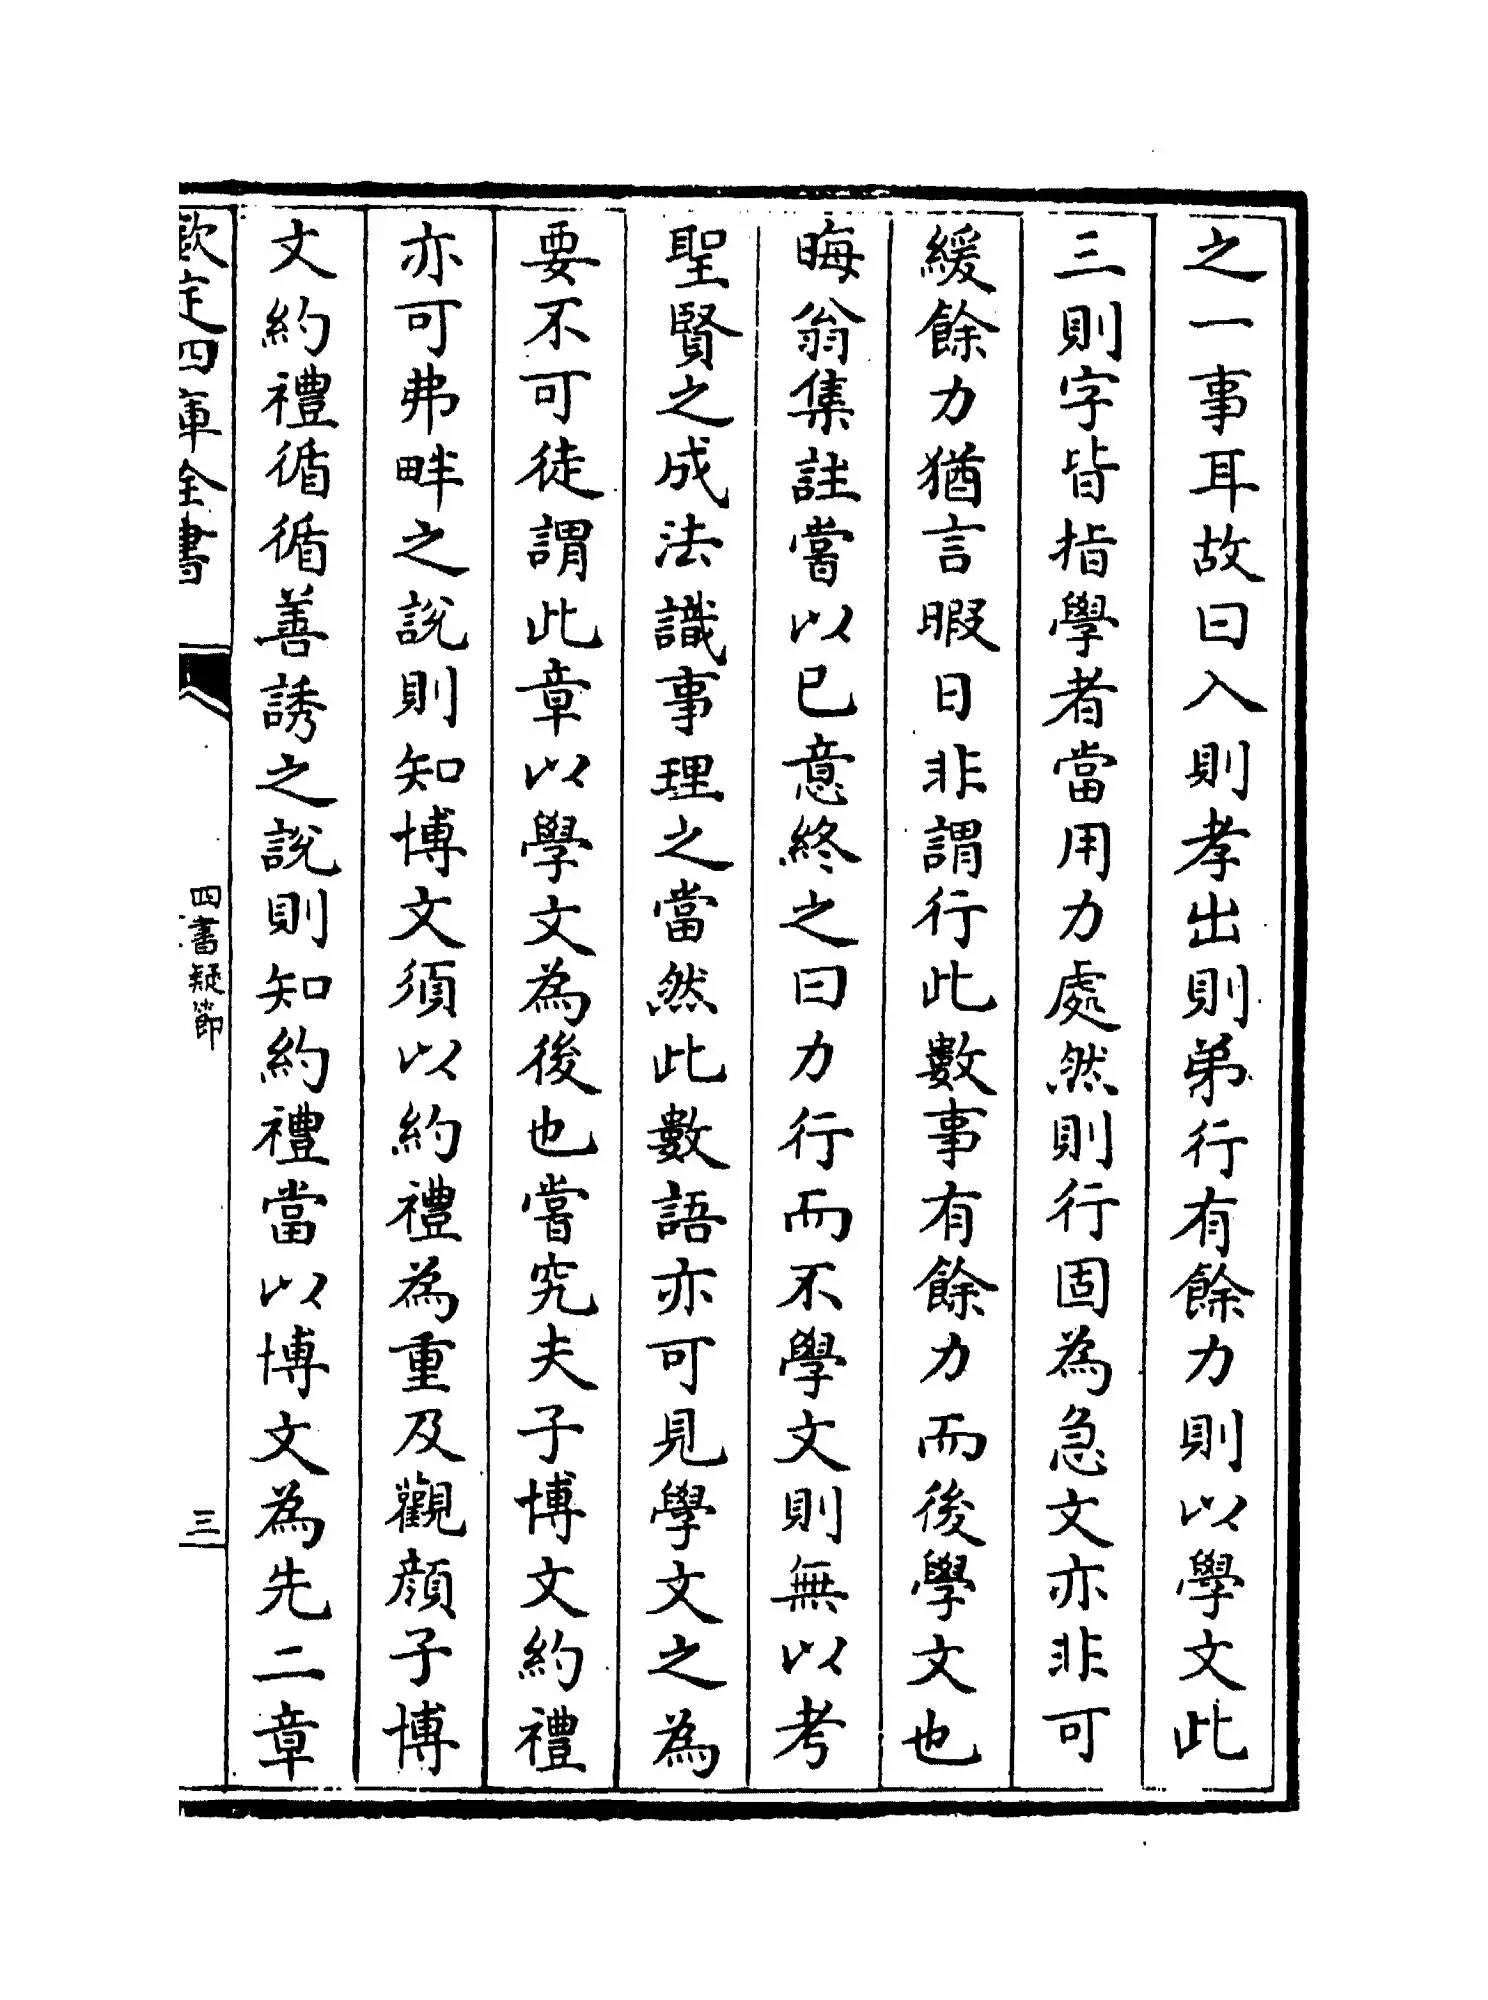 之一事耳故曰入則孝出則弟行有餘力則以學文此
三則字皆指學者當用力處然則行固為急文亦非可
緩餘力猶言暇日非謂行此數事有餘力而後學文也
晦翁集註嘗以已意終之曰力行而不學文則無以考
聖賢之成法識事理之當然此數語亦可見學文之為
要不可徒謂此章以學文為後也嘗究夫子博文約禮
亦可弗畔之説則知博文須以約禮為重及觀顔子博
文約禮循循善誘之説則知約禮當以博文為先二章
欽定四庫全書
四書疑節
三